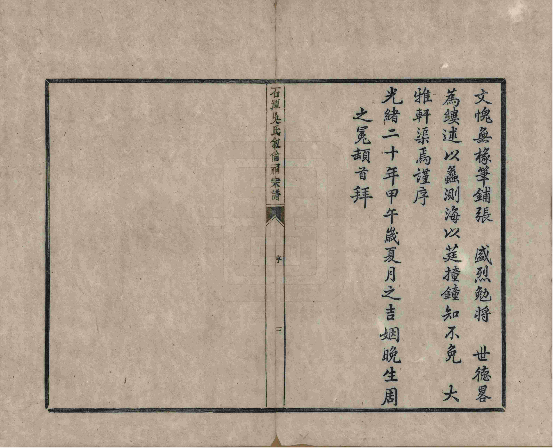 文愧無椽筆鋪張　盛烈勉將　世德畧
為縷述以蠡測海以莛撞鐘知不免　大
雅軒渠焉謹序
光緒二十年甲午歲夏月之吉姻晚生周
之冕頓首拜
石
吳氏敘倫祠宗譜
序
二